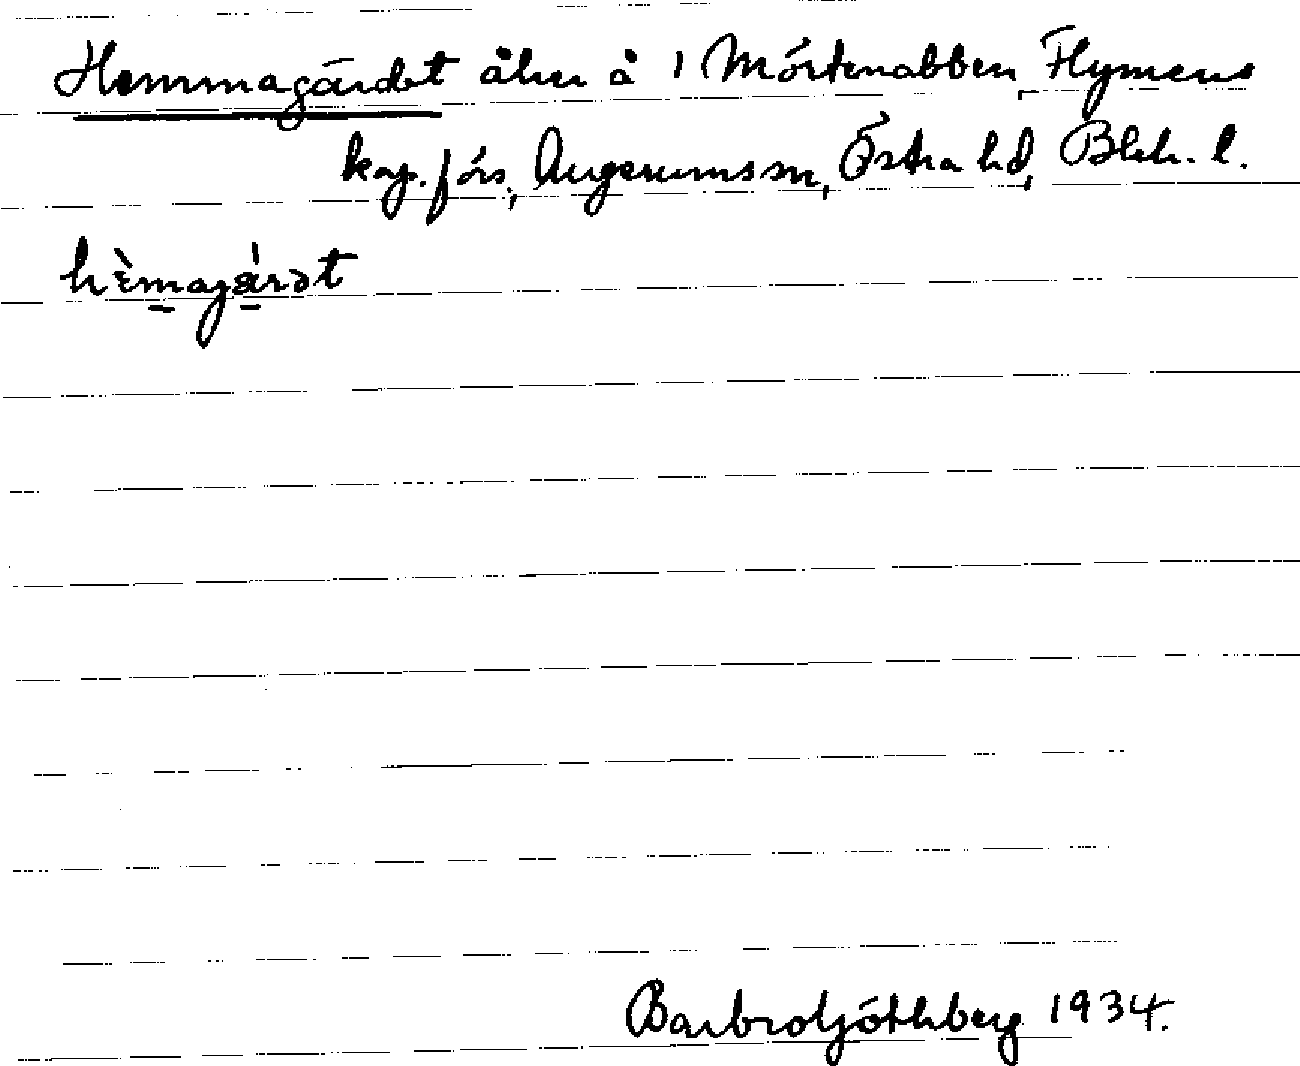 Hemmagärdet åker å 1 Mörtenabben, Flymens
kap. förs., Augerumssn, Östra hd, Blek. l.
hèmagárət
Barbro Ljóthberg 1934.